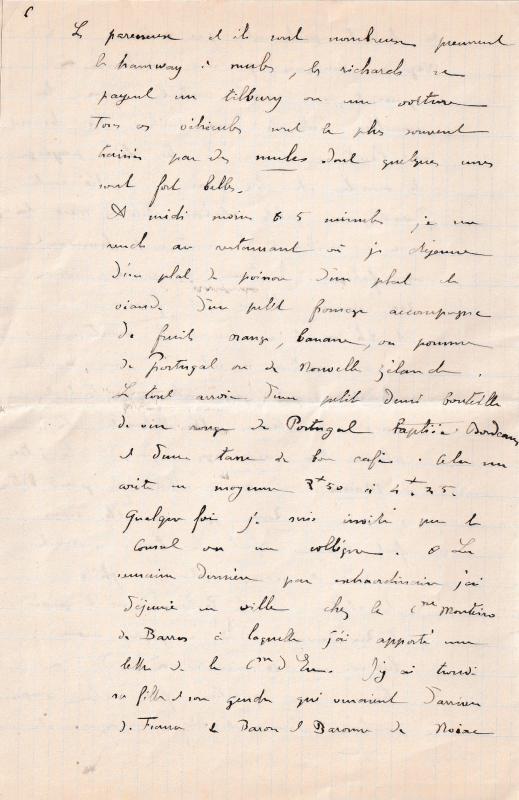 6
Les paresseux et ils sont nombreux prennent
le tramway à mules, les richards se
payent un tilbury ou une voiture
Tous ces véhicules sont le plus souvent
trainés par des mules dont quelques unes
sont fort belles.
A midi moins 5 minutes je me
rends au restaurant où je déjeune
d'un plat de poisson d'un plat de
viande d'un petit fromage accompagné
de fruits orange, banane, ou pomme
de Portugal ou de Nouvelle Zélande.
Le tout arrosé d'une petite demi bouteille
de vin rouge de Portugal baptisé Bordeaux
et d'une tasse de bon café. Cela me
coûte en moyenne 50 à 4 .
Quelque fois je suis invité par le
Consul ou un collègue. La
semaine dernière par extraordinaire j'ai
déjeuné en ville chez la Ctesse Monteiro
de Barros à laquelle j'ai apporté une
lettre de la Ctesse d'Eu. J'y ai trouvé
sa fille et son gendre qui venaient d'arriver
de France le Baron et Baronne de